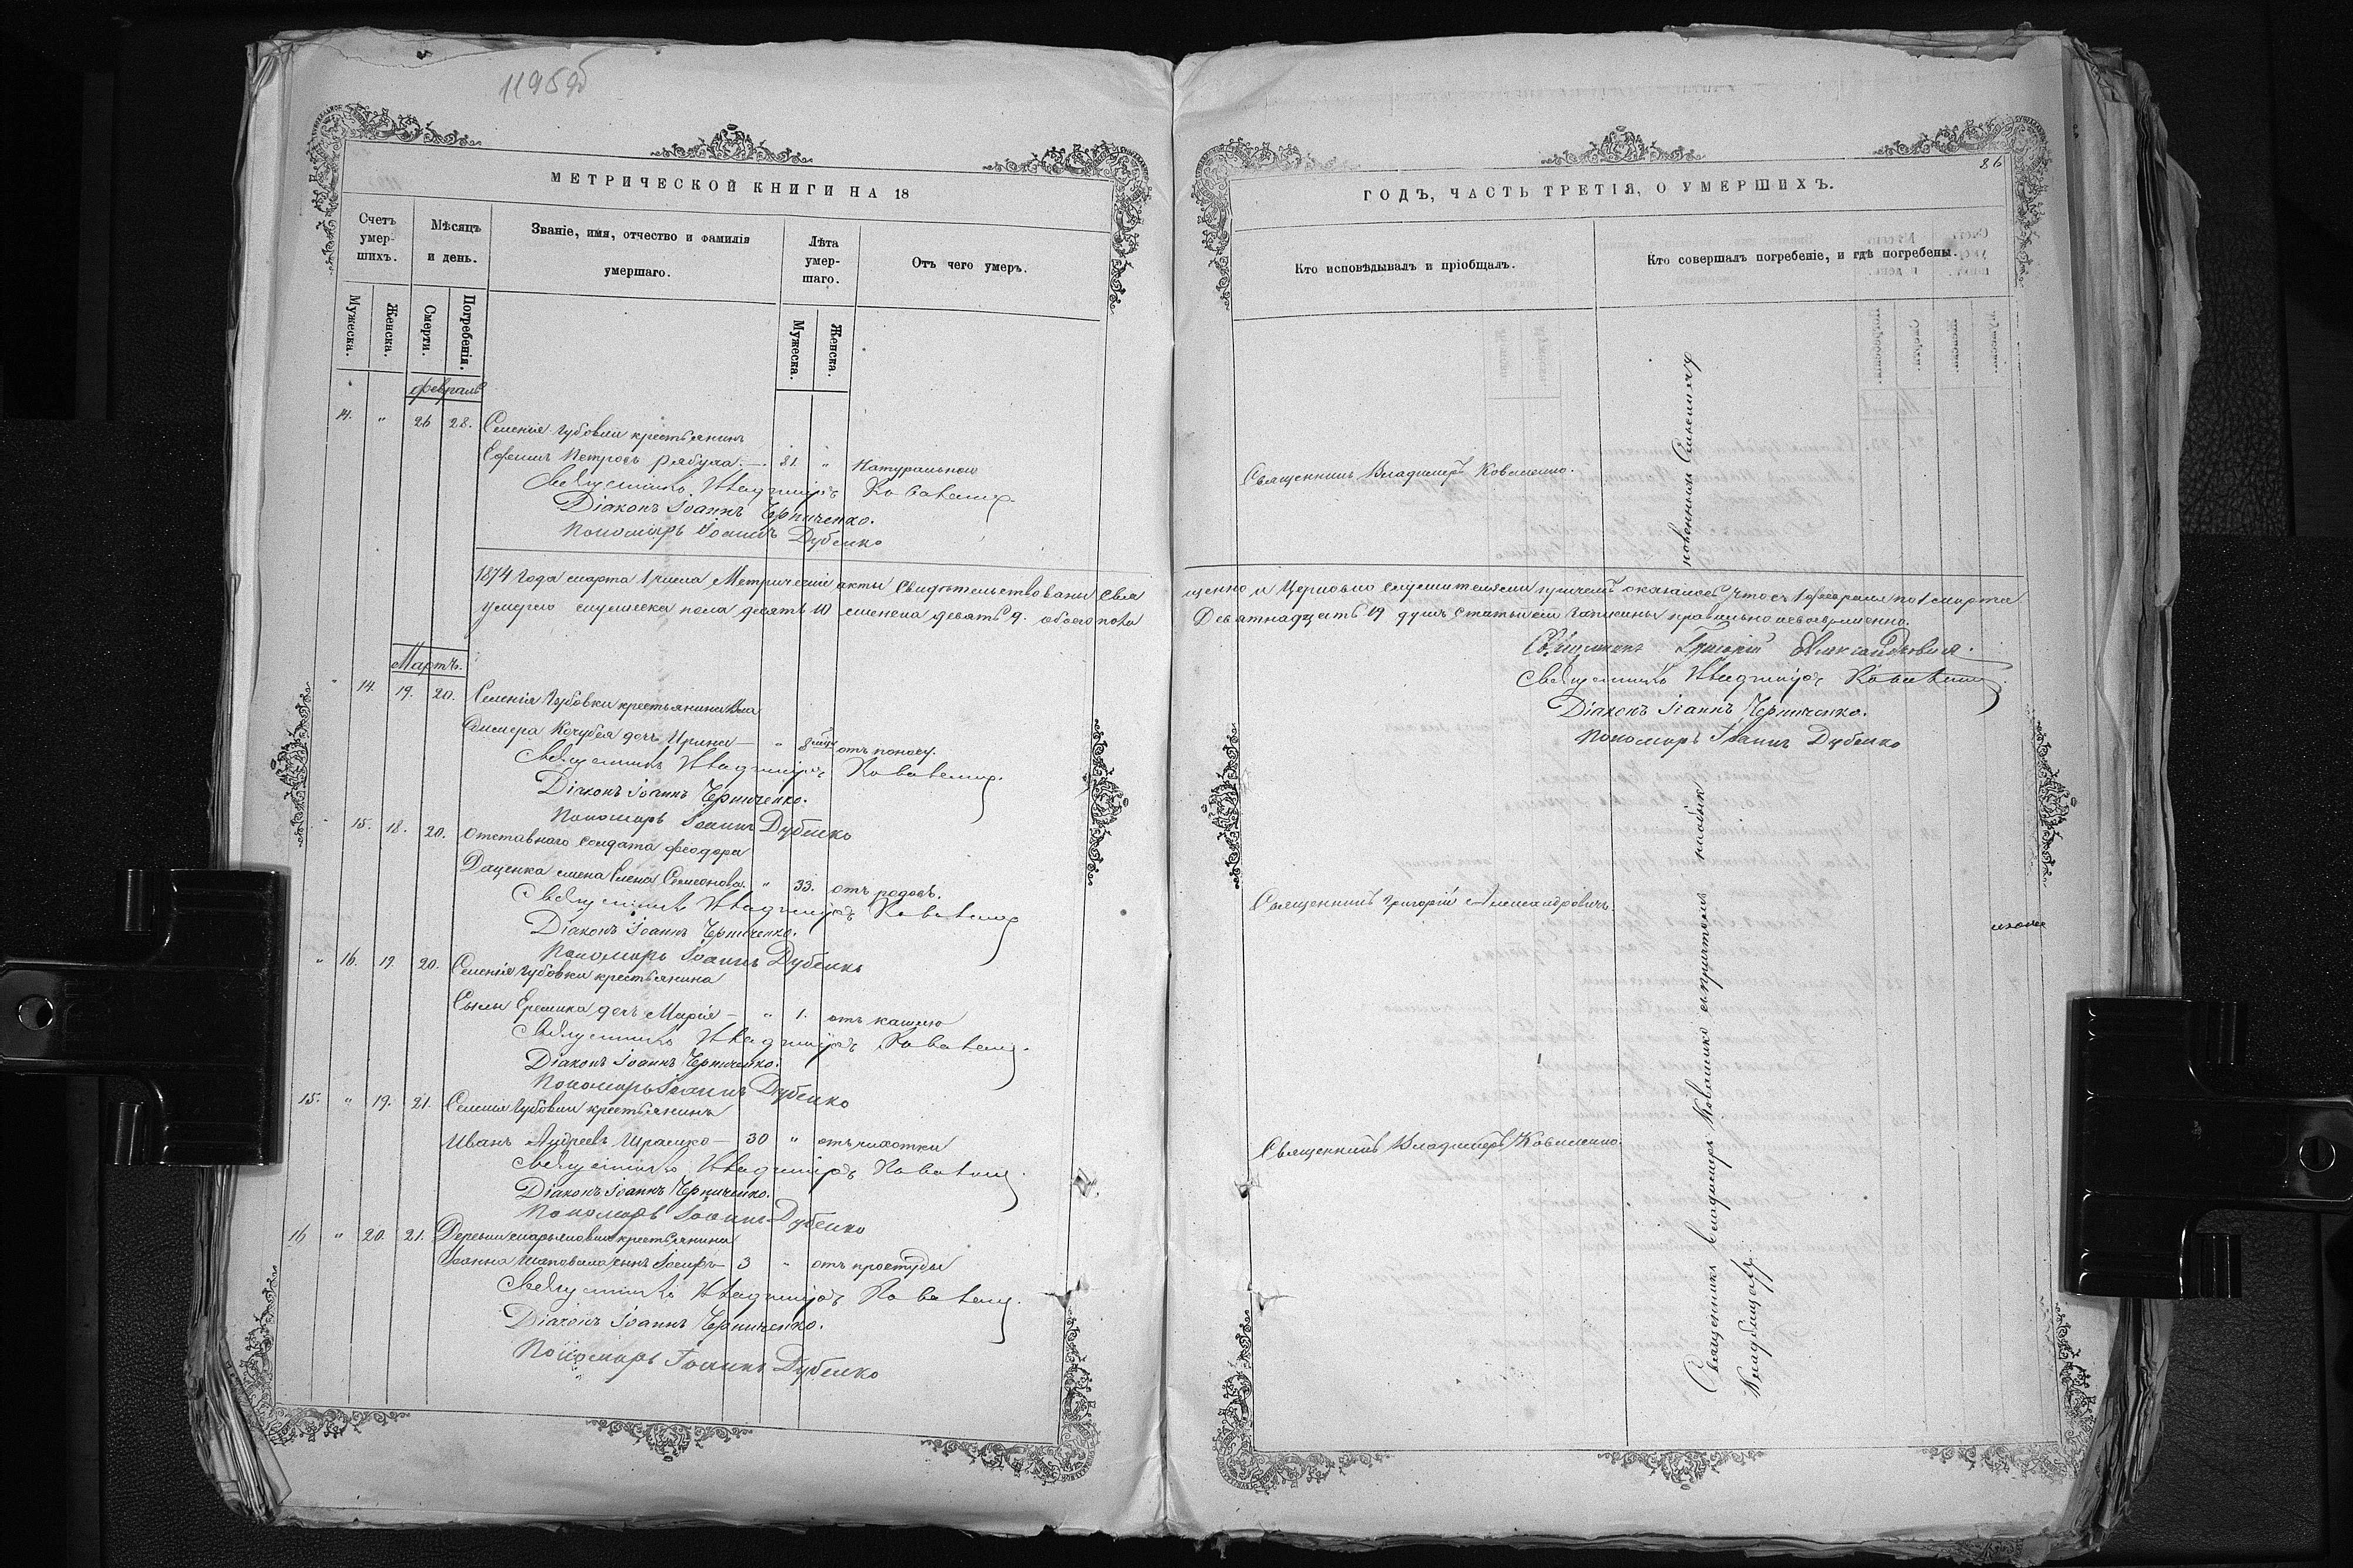 1195 об
МЕТРИЧЕСКОЙ КНИГИ НА 18
Счетъ умер- шихъ.
Мѣсяцъ и день.
Званіе, имя, отчество и фамилія умершаго.
Лѣта умер- шаго.
Отъ чего умеръ.
Мужеска.
Женска.
Смерти.
Погребенія.
Мужеска.
Женска.
февраль
14. " 26 28. Селенія Губовки крестьянинъ
Ефимъ Петровъ Рябуха. — 81. " Натуральною
Священникъ Владиміръ Коваленко.
Діаконъ Іоаннъ Черниченко.
Пономарь Іоаннъ Дубенко
1874 года марта 1 числа Метрическіе акты свидѣтельствованы свя
умерло мужеска пола десять 10 женска девять 9. обоего пола
Мартъ.
" 14. 19. 20. Селенія Губовки крестьянина Вла
димера Кочубея дочь Ирина — " 8 отъ поносу.
Священникъ Владиміръ Коваленко.
Діаконъ Іоаннъ Черниченко.
Пономарь Іоаннъ Дубенко
" 15. 18. 20. Отставнаго солдата Феодора
Даценка жена Елена Семеонова. " 33. отъ родовъ.
Священникъ Владиміръ Коваленко
Діаконъ Іоаннъ Черниченко.
Пономарь Іоаннъ Дубенко
" 16. 19. 20. Селенія Губовки крестьянина
Сылы Еремика дочь Марія — " 1. отъ кашлю
Священникъ Владиміръ Коваленко.
Діаконъ Іоаннъ Черниченко.
Пономарь Іоаннъ Дубенко
15. " 19. 21. Селенія Губовки крестьянинъ
Иванъ Андреевъ — 30 " отъ чахотки
Священникъ Владиміръ Коваленко.
Діаконъ Іоаннъ Черниченко.
Пономарь Іоаннъ Дубенко
16 " 20. 21. Деревни Марьяновки крестьянина
Іоанна Шаповала сынъ Іосифъ — 3 " отъ простуды
Священникъ Владиміръ Коваленко.
Діаконъ Іоаннъ Черниченко.
Пономарь Іоаннъ Дубенко
86
ГОДЪ, ЧАСТЬ ТРЕТІЯ, О УМЕРШИХЪ.
Кто исповѣдывалъ и пріобщалъ.
Кто совершалъ погребеніе, и гдѣ погребены.
Священникъ Владимеръ Коваленко.
щенно и Церковно служителями причемъ оказалось что съ 1 февраля по 1 марта
Девятнадцать 19 душъ Статьи сіи записаны правильно и своевременно.
Священникъ Григорій Александровичъ.
Священникъ Владиміръ Коваленко.
Діаконъ Іоаннъ Черниченко.
Пономарь Іоаннъ Дубенко
Священникъ Григорій Александровичъ.
Священникъ Владимеръ Коваленко.
Священникъ Владимеръ Коваленко съ причтомъ на
Кладбищахъ.